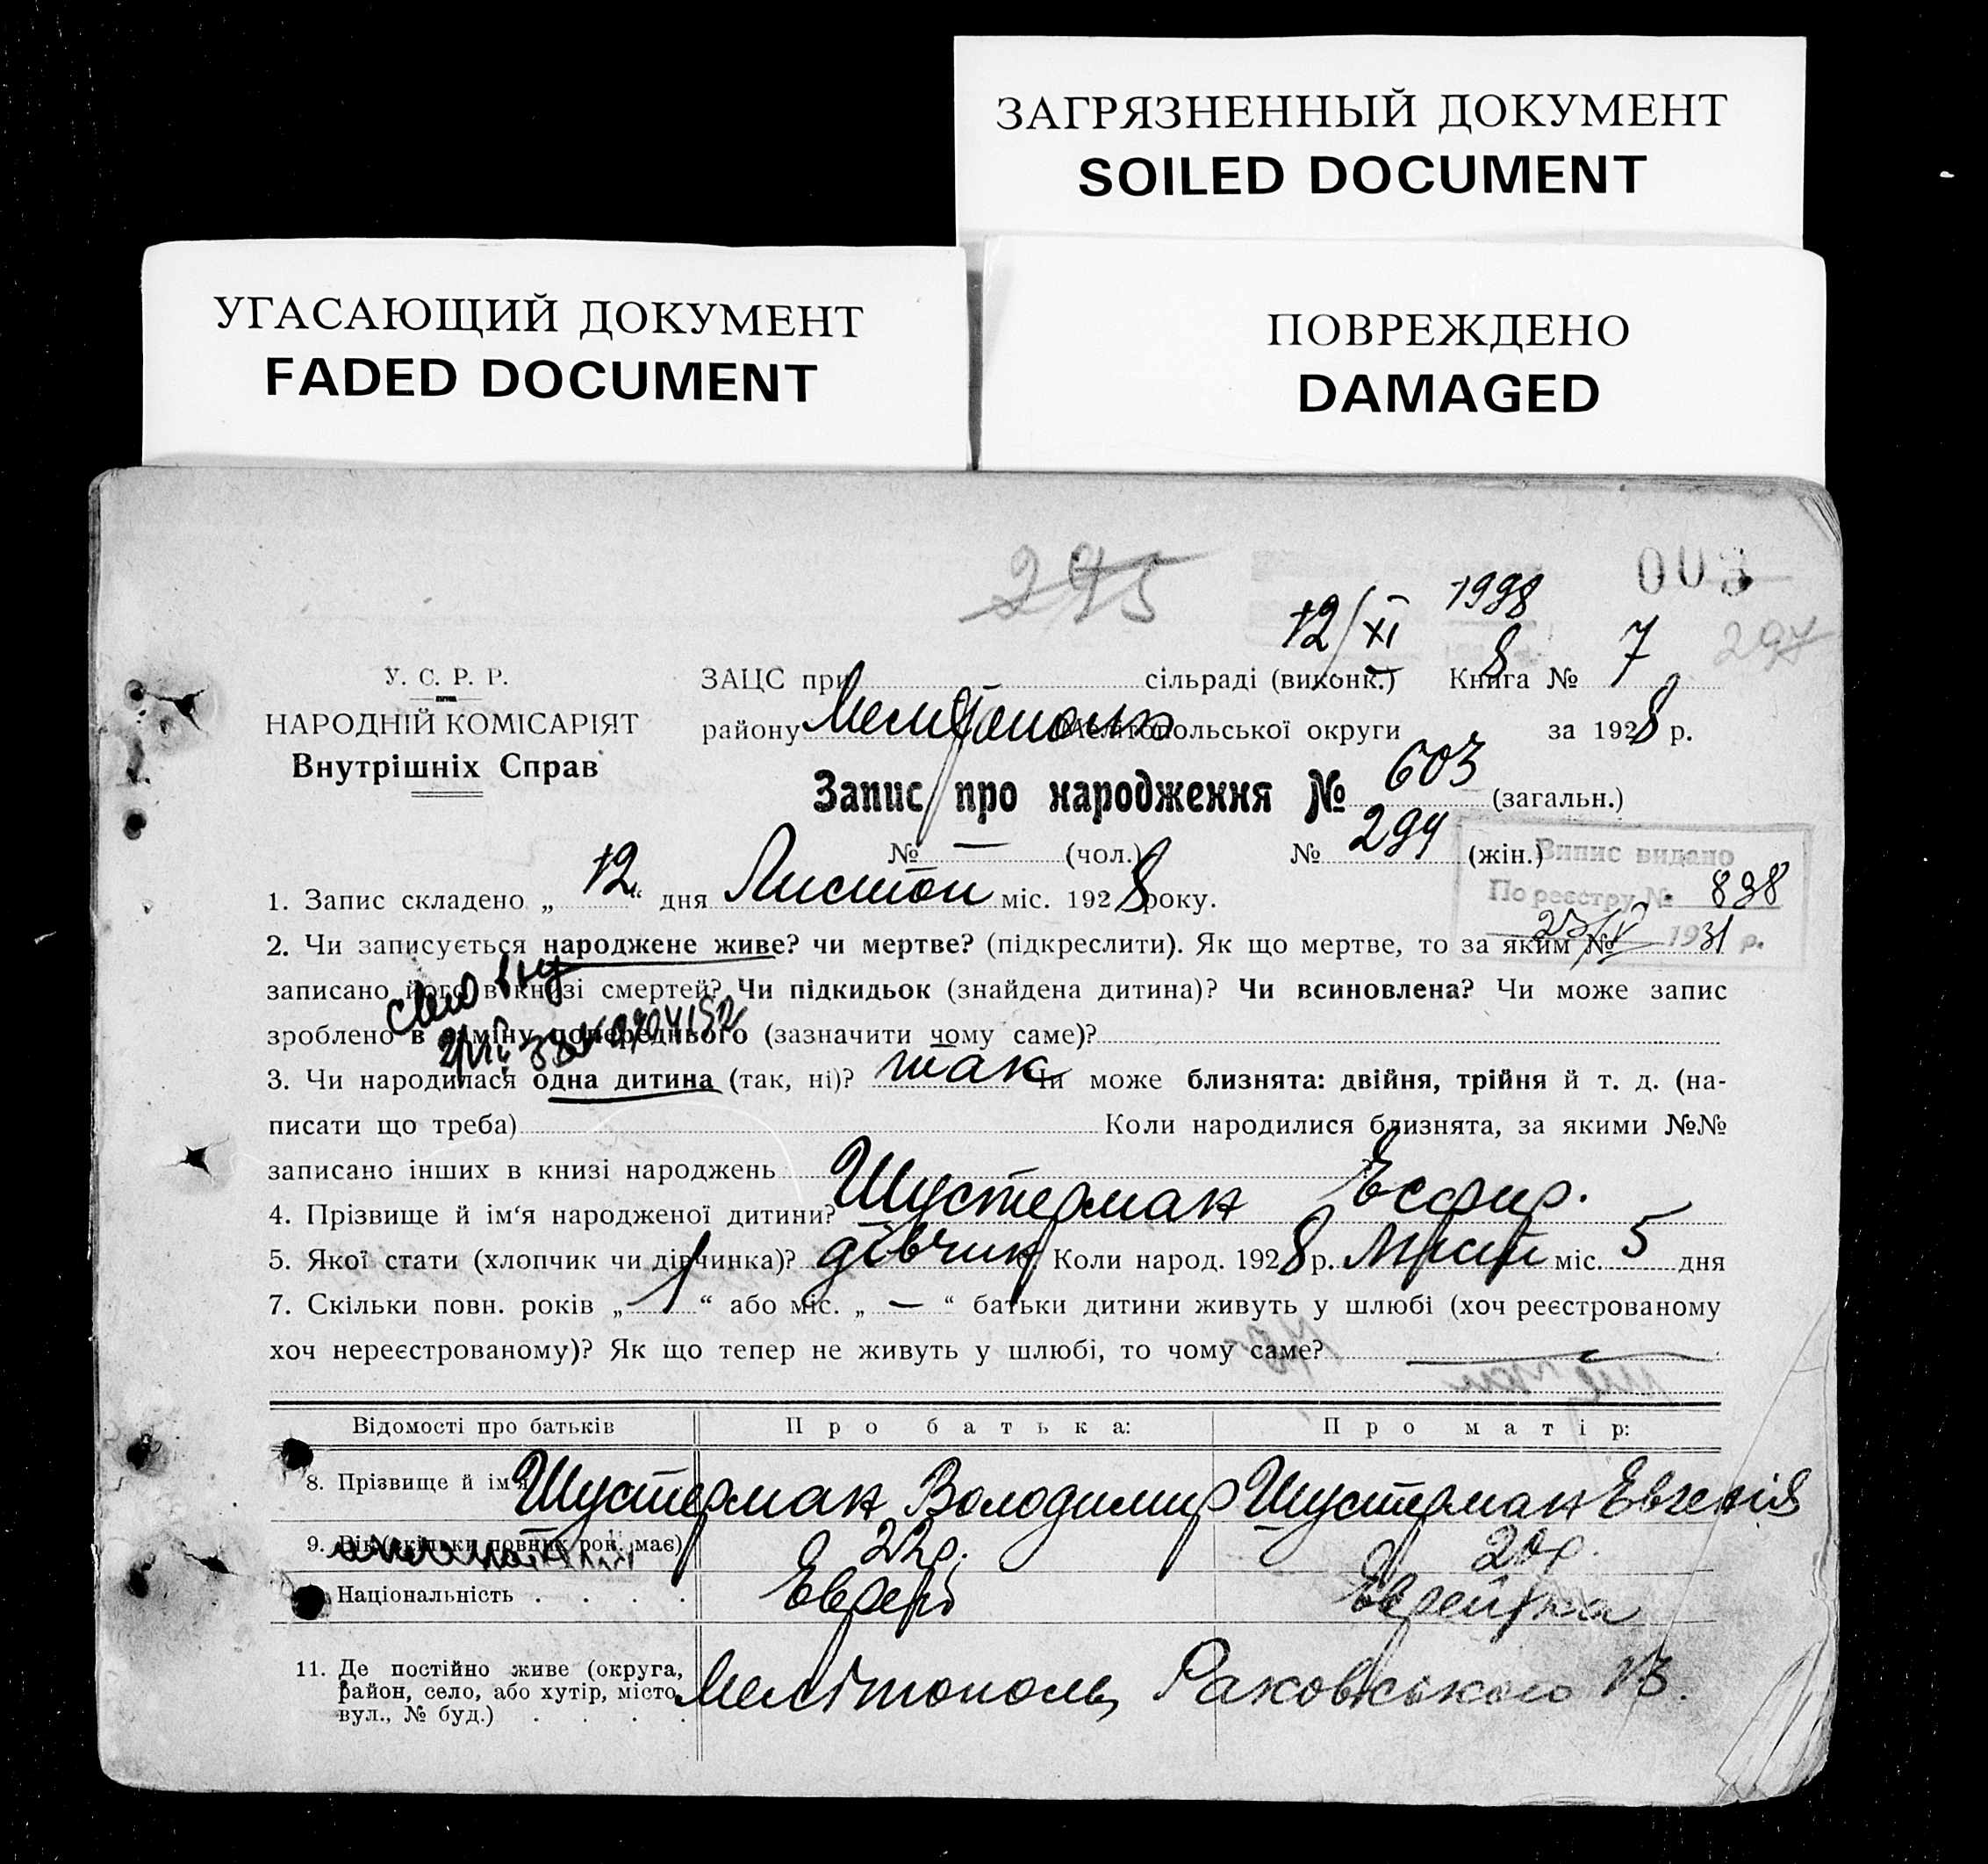 ЗАГРЯЗНЕННЫЙ ДОКУМЕНТ
SOILED DOCUMENT
УГАСАЮЩИЙ ДОКУМЕНТ
FADED DOCUMENT
ПОВРЕЖДЕНО
DAMAGED
295
003
12/XI 1928
297
У. С. Р. Р.
НАРОДНІЙ КОМІСАРІЯТ
Внутрішніх Справ
ЗАЦС при сільраді (виконк.) Книга № 7
району Мелітополь Мелітопольської округи за 1928 р.
Запис про народження № 603 (загальн.)
№ — (чол.) № 294 (жін.)
Випис видано
По реєстру № 838
1931 р.
1. Запис складено „ 12 “ дня Листоп міс. 1928 року.
2. Чи записується народжене живе? чи мертве? (підкреслити). Як що мертве, то за яким №
записано його в книзі смертей? Чи підкидьок (знайдена дитина)? Чи всиновлена? Чи може запис
зроблено в заміну попереднього (зазначити чому саме)?
3. Чи народилася одна дитина (так, ні)? так Чи може близнята: двійня, трійня й т. д. (на-
писати що треба) Коли народилися близнята, за якими №№
записано інших в книзі народжень
4. Прізвище й ім‘я народженої дитини? Шустерман Есфир.
5. Якої стати (хлопчик чи дівчинка)? дівчин Коли народ. 1928 р. міс. 5 дня
7. Скільки повн. років „ 1 “ або міс. „ — “ батьки дитини живуть у шлюбі (хоч реєстрованому
хоч нереєстрованому)? Як що тепер не живуть у шлюбі, то чому саме? —
Відомості про батьків Про батька: Про матір:
8. Прізвище й ім‘я Шустерман Володимир Шустерман Евгенія
9. Вік (скільки повних рок. має) 22р. 20р.
Національність . . . . Еврей Еврейка
11. Де постійно живе (округа,
район, село, або хутір, місто,
вул., № буд.) . . . . Мелітополь, Раковського 13.